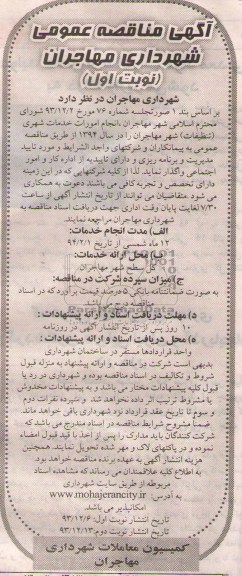 آگهی مناقصه عمومی
شهرداری مهاجران
(نوبت اول)
شهرداری مهاجران در نظر دارد
بر اساس بند ۱ صورتجلسه شماره ۷۶ مورخ ۹۳/۱۲/۲ شورای
محترم اسلامی شهر مهاجران بانجام امورات خدمات شهری
(تنظیفات) شهر مهاجران را در سال ۱۳۹۴ از طریق مناقصه
عمومی به پیمانکاران و شرکتهای واجد الشرایط و مورد تایید
مدیریت و برنامه ریزی و دارای تاییدیه از اداره کار و امور
اجتماعی واگذار نماید. لذا از کلیه شرکتهایی که در این زمینه
دارای تخصص و تجربه کافی می باشند دعوت به همکاری
می شود. متقاضیان می توانند از تاریخ انتشار آگهی از ساعت
۷/۳۰ لغایت پایان وقت اداری جهت دریافت اسناد مناقصه به
شهرداری مهاجران مراجعه نمایند.
الف) مدت انجام خدمات:
۱۲ ماه شمسی از تاریخ ۹۴/۲/۱
ب) محل ارائه خدمات:
کل سطح شهر مهاجران
ج) میزان سپرده شرکت در مناقصه:
به صورت ضمانتنامه بانکی ۵ درصد قیمت برآورد که در اسناد
مناقصه درج می باشد
د) مهلت دریافت اسناد و ارائه پیشنهادات:
۱۰ روز پس از تاریخ انتشار آگهی در روزنامه
ه) محل دریافت اسناد و ارائه پیشنهادات:
واحد قراردادها مستقر در ساختمان شهرداری
بدیهی است شرکت در مناقصه و ارائه پیشنهاد به منزله قبول
شروط و تکالیف در اسناد مناقصه بوده و شهرداری در رد یا
قبول کلیه پیشنهادات مختار می باشد و به پیشنهادات مخدوش
یا مشروط ترتیب اثر داده نخواهد شد و سپرده نفرات دوم
و سوم تا تاریخ عقد قرارداد نزد شهرداری باقی خواهد ماند.
ضمنا مشروح شرایط مناقصه در اسناد مندرج می باشد که
شرکت کنندگان باید مدارک را پس از اخذ با قید قبول امضاء
نموده و در پاکتهای لاک و مهر شده تحویل نمایند. همچنین
هزینه انتشار آگهی به عهده برنده مناقصه خواهد بود.
به اطلاع کلیه علاقمندان می رساند که مشاهده اسناد
مربوطه از طریق سایت شهرداری
به آدرس: www.mohajerancity.ir
امکانپذیر می باشد
تاریخ انتشار نوبت اول: ۹۳/۱۲/۶
تاریخ انتشار نوبت دوم: ۹۳/۱۲/۱۳
کمیسیون معاملات شهرداری
مهاجران